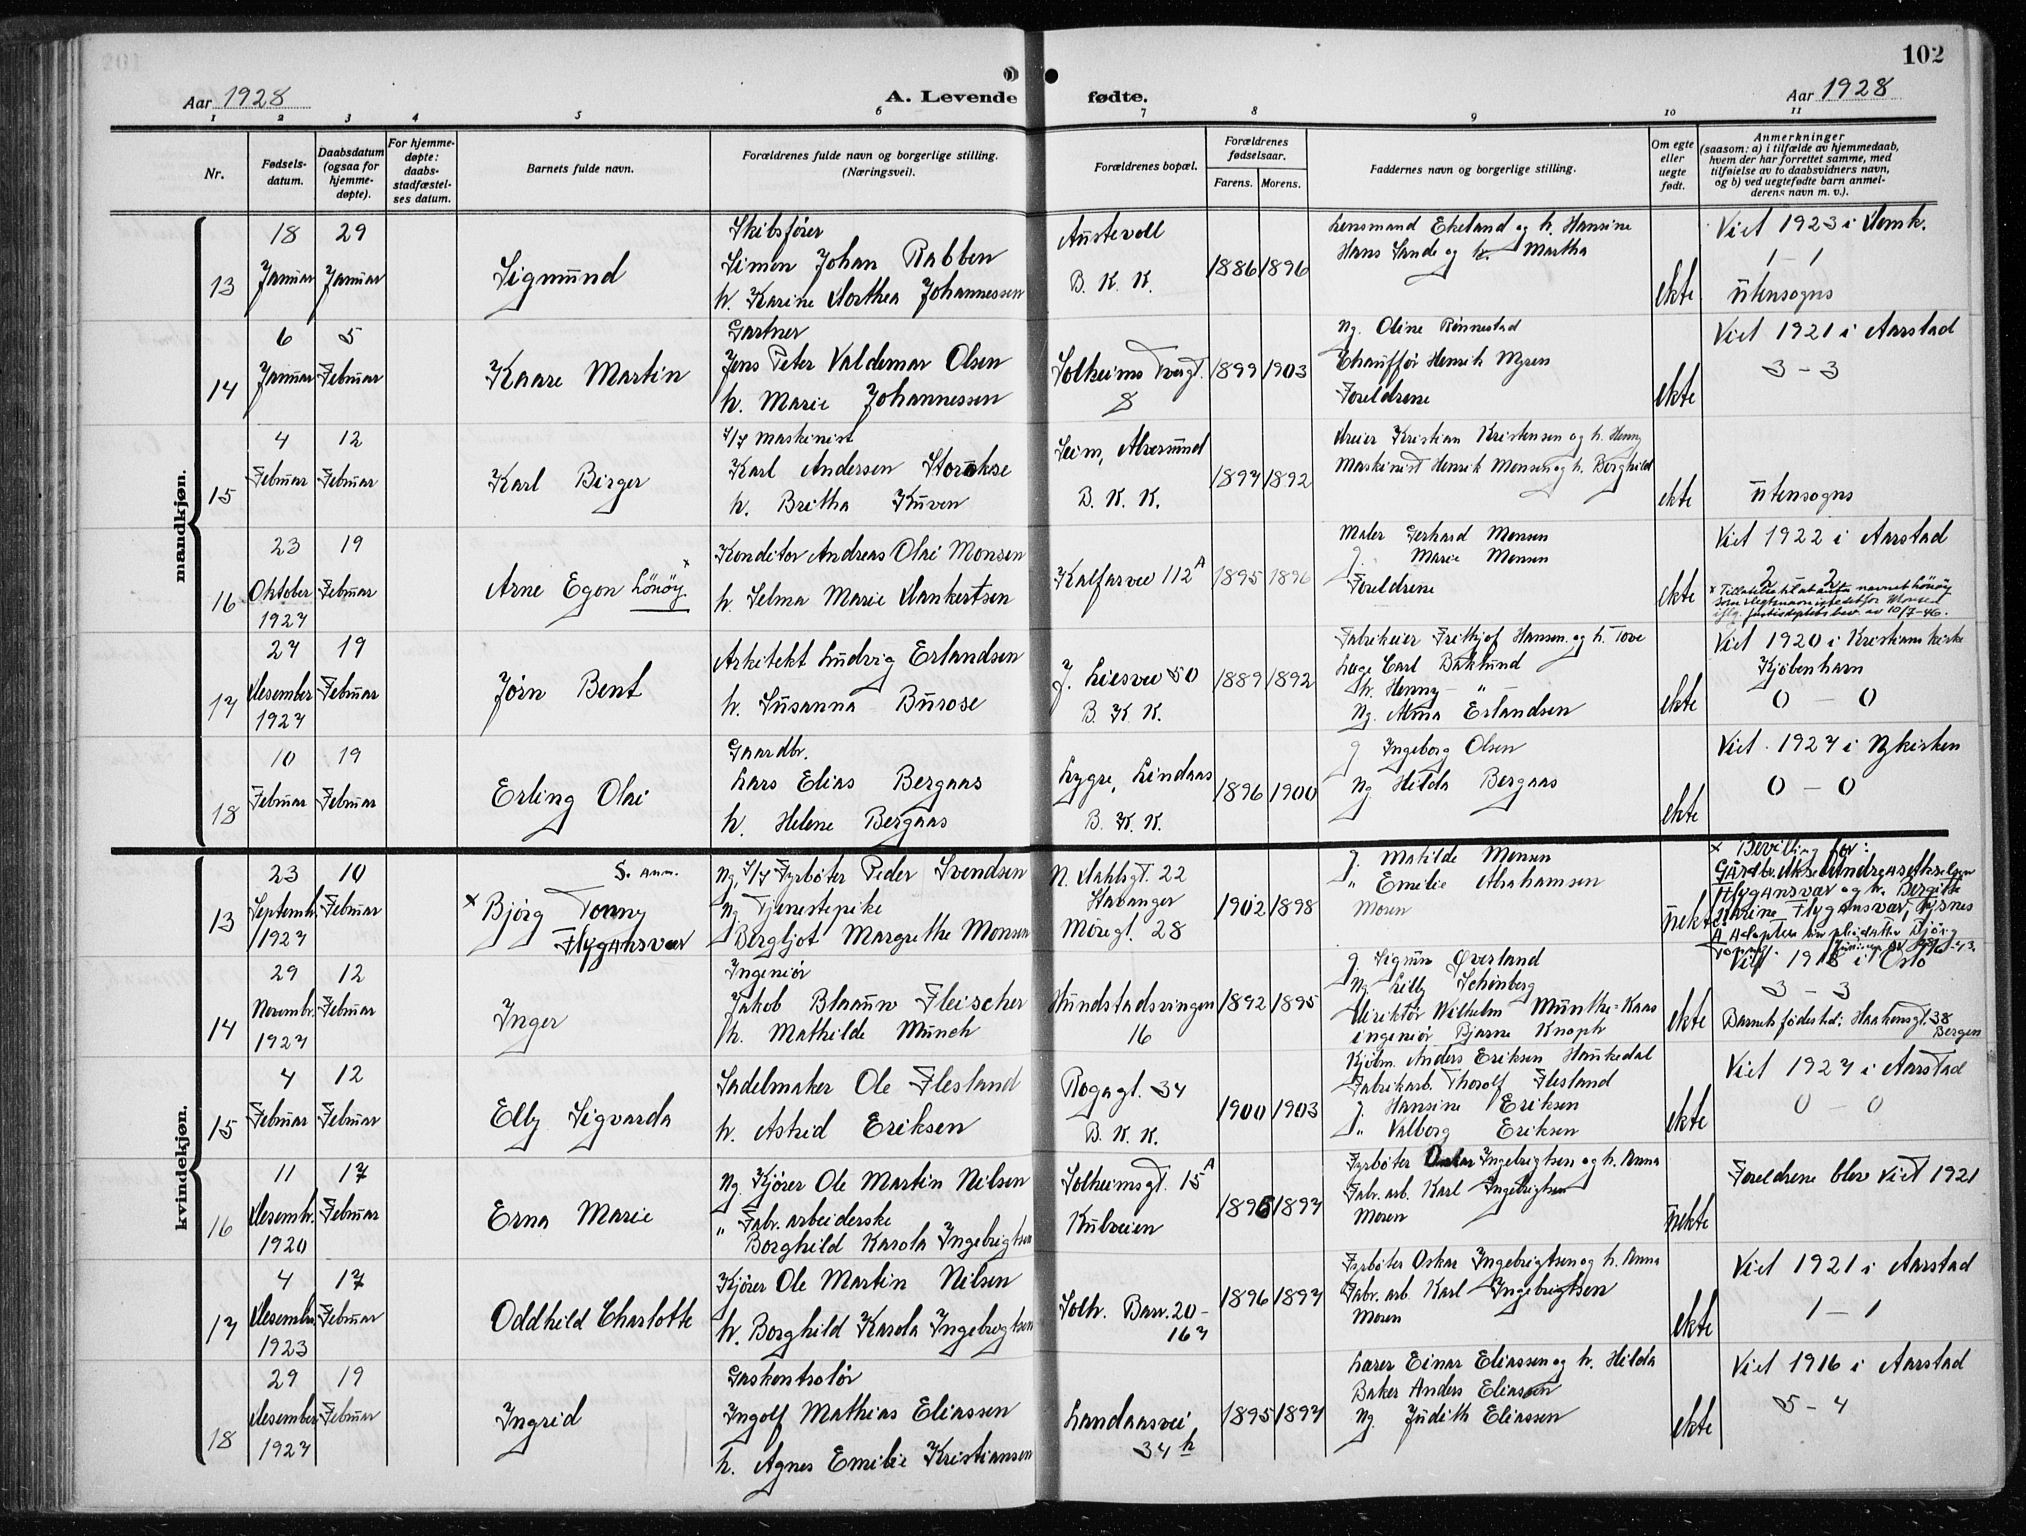 102
Aar 1928
A. Levende fødte.
Aar 1928
1 2 3 4 5 6 7 8 9 10 11
Nr.
Fødsels-
datum.
Daabsdatum
(ogsaa for
hjemme-
døpte).
For hjemme-
døpte:
daabs-
stadfæstel-
ses datum.
Barnets fulde navn.
Forældrenes fulde navn og borgerlige stilling.
(Næringsvei).
Forældrenes bopæl.
Forældrenes
fødselsaar.
Farens. Morens.
Faddernes navn og borgerlige stilling.
Om egte
eller
uegte
født.
Anmerkninger
(saasom: a) i tilfælde av hjemmedaab,
hvem der har forrettet samme, med
tilføielse av to daabsvidners navn,
og b) ved uegtefødte barn anmel-
derens navn m. v.).
mandkjøn.
13
18
Januar
29
Januar
Sigmund
Skibsfører
Simon Johan Rabben
h. Karine Dorthea Johannessen
Austevoll
B. K. K.
1886 1896
Lensmand Ekeland og h. Hansine
Hans Sande og h. Martha
ekte
Viet 1923 i Domk.
1 - 1
utensogns
14
6
Januar
5
Februar
Kaare Martin
Gartner
Jens Peter Valdemar Olsen
h. Marie Johannessen
Solheims Tvergt.
8
1899 1903
Ng. Oline Rønnestad
Chauffør Henrik Myren
Foreldrene
ekte
Viet 1921 i Aarstad
3 - 3
15
4
Februar
12
Februar
Karl Birger
Maskinist
Karl Andersen Storokse
h. Britha Kuven
Seim, Alversund
B. K. K.
1897 1892
Dreier Kristian Kristensen og h. Henny
Maskinist Henrik Monsen og h. Borghild
ekte
utensogns
16
23
Oktober
1927
19
Februar
Arne Egon Lönöy x
Konditor Andreas Olai Monsen
h. Selma Marie Dankertsen
Kalfarvei 112 A
1895 1896
Maler Gerhard Monsen
g. Marie Monsen
Foreldrene
ekte
Viet 1922 i Aarstad
2 - 2
x Tillatelse til at anta navnet Lönöy
som slegtsnavn istedetfor Monsen
iflg. justisdeptets bev. av 10/7-46.
17
27
Desember
1927
19
Februar
Jørn Bent
Arkitekt Ludvig Erlandsen
h. Susanna Burose
J. Liesvei 50
B. K. K.
1889 1892
Fabrikeier Frithjof Hansen og h. Tove
Læge Carl Baklund
h. Henny "
Ng. Alma Erlandsen
ekte
Viet 1920 i Kristians kirke
Kjøbenhavn
0 - 0
18
10
Februar
19
Februar
Erling Olai
Gaardbr.
Lars Elias Bergaas
h. Helene Bergaas
Lygre, Lindaas
B. K. K.
1896 1900
g Ingeborg Olsen
Ng Hilda Bergaas
ekte
Viet 1927 i Nykirken
0 - 0
kvindekjøn.
13
23
Septemb.
1927
10
Februar
S. anm.
x Bjørg Tonny
Flygansvær
Ng. Fyrbøter Peder Svendsen
Ng. Tjenestepike
Bergljot Margrethe Monsen
N. Dahlsgt. 22
Stavanger
Møregt. 28
1902 1898
g. Matilde Monsen
" Emilie Abrahamsen
Moren
uekte
x Bevilling for:
Gårdbr. Aksel Andreas Akselsen
Flygansvær og h. Bergitte
Karine Flygansvær, Tysnes
14
29
Novembr.
1927
12
Februar
Inger
Ingeniør
Jakob Blaauw Fleischer
h. Mathilde Munch
Hundstadsvingen
16
1892 1895
g. Sigrun Øverland
Ng. Lilly Schönberg
Direktør Wilhelm Munthe-Kaas
ingeniør Bjarne Knoph
ekte
Viet 1918 i Oslo
3 - 3
Barnets fødested: Haakonsgt. 38
Bergen
15
4
Februar
12
Februar
Elly Sigvarda
Sadelmaker Ole Flesland
h. Astrid Eriksen
Rogagt. 34
B. K. K.
1900 1903
Kjøbm. Anders Eriksen Haukedal
Fabrikarb. Thorolf Flesland
g. Hansine Eriksen
" Valborg Eriksen
ekte
Viet 1927 i Aarstad
0 - 0
16
11
Desembr.
1920
17
Februar
Erna Marie
Ng. Kjører Ole Martin Nilsen
" Fabr. arbeiderske
Borghild Karola Ingebrigtsen
Solheimsgt. 15 A
Kulveien
1896 1897
Fyrbøter Oskar Ingebrigtsen og h. Anna
Fabr. arb. Karl Ingebrigtsen
Moren
uekte
Foreldrene blev viet 1921
17
4
Desembr.
1923
17
Februar
Oddhild Charlotte
Kjører Ole Martin Nilsen
h. Borghild Karola Ingebrigtsen
Solh. Barr. 20-
167
1896 1897
Fyrbøter Oskar Ingebrigtsen og h. Anna
Fabr. arb. Karl Ingebrigtsen
Moren
ekte
Viet 1921 i Aarstad
1 - 1
18
29
Desember
1927
19
Februar
Ingrid
Gaskontrolør
Ingolf Mathias Eliassen
h. Agnes Emilie Kristiansen
Landaasvei
34 h
1895 1897
Lærer Einar Eliassen og h. Hilda
Baker Anders Eliassen
Ng. Judith Eliassen
ekte
Viet 1916 i Aarstad
5 - 4